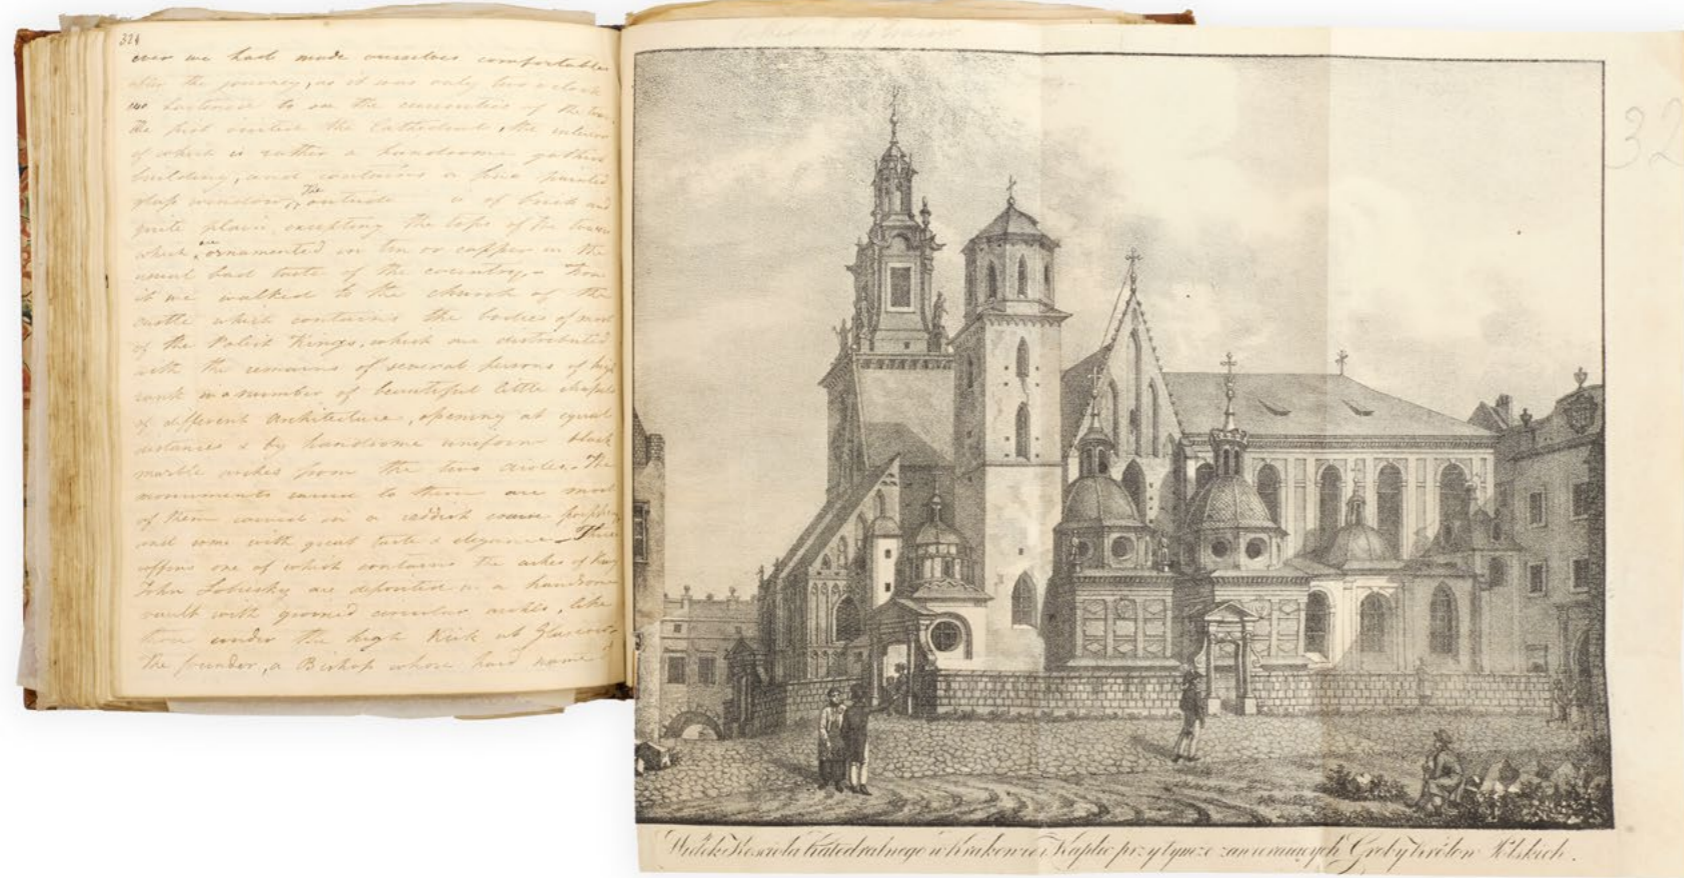 324
over we had made ourselves comfortable
after the journey, as it was only two o'clock
we hastened to see the curiosities of the town.
We first visited the Cathedral, the interior
of which is rather a handsome gothic
building, and contains a fine painted
glass window, The outside is of brick and
quite plain, excepting the tops of the towers
which are ornamented in tin or copper in the
usual bad taste of the country, – From
it we walked to the church of the
castle which contains the bodies of most
of the Polish Kings, which are distributed
with the remains of several persons of high
rank in a number of beautiful little chapels
of different Architecture, opening at equal
distances & by handsome uniform black
marble arches from the two aisles. – The
monuments in them are most
of them carved in a reddish coarse porphyry
and some with great taste & elegance – Three
coffins one of which contains the ashes of King
John Sobiesky are deposited in a handsome
vault with groined circular arches, like
those under the high Kirk at Glasgow.
The founder, a Bishop whose hard name I
Cathedral of Cracow
32
Widok Kościoła Katedralnego w Krakowie i Kaplic przytymże zawieraiących Groby Królow Polskich.